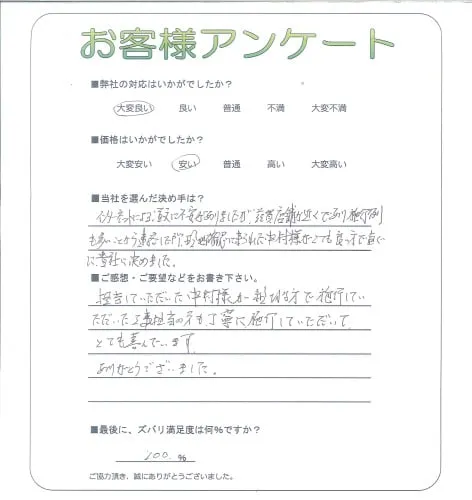 お客様アンケート
■弊社の対応はいかがでしたか?
大変良い 良い 普通 不満 大変不満
■価格はいかがでしたか?
大変安い 安い 普通 高い 大変高い
■当社を選んだ決め手は?
インターネットによる 不安がありましたが、滋賀店舗が近くであり施行例
も多いことから連絡した 中村様がとても良い方で直ぐ
に貴社に決めました。
■ご感想・ご要望などをお書き下さい。
担当していただいた中村様が親切で施行してい
ただいた工事担当の方が丁寧に施行していただいて
とても喜んでいます
ありがとうございました。
■最後に、ズバリ満足度は何%ですか?
100 %
ご協力頂き、誠にありがとうございました。